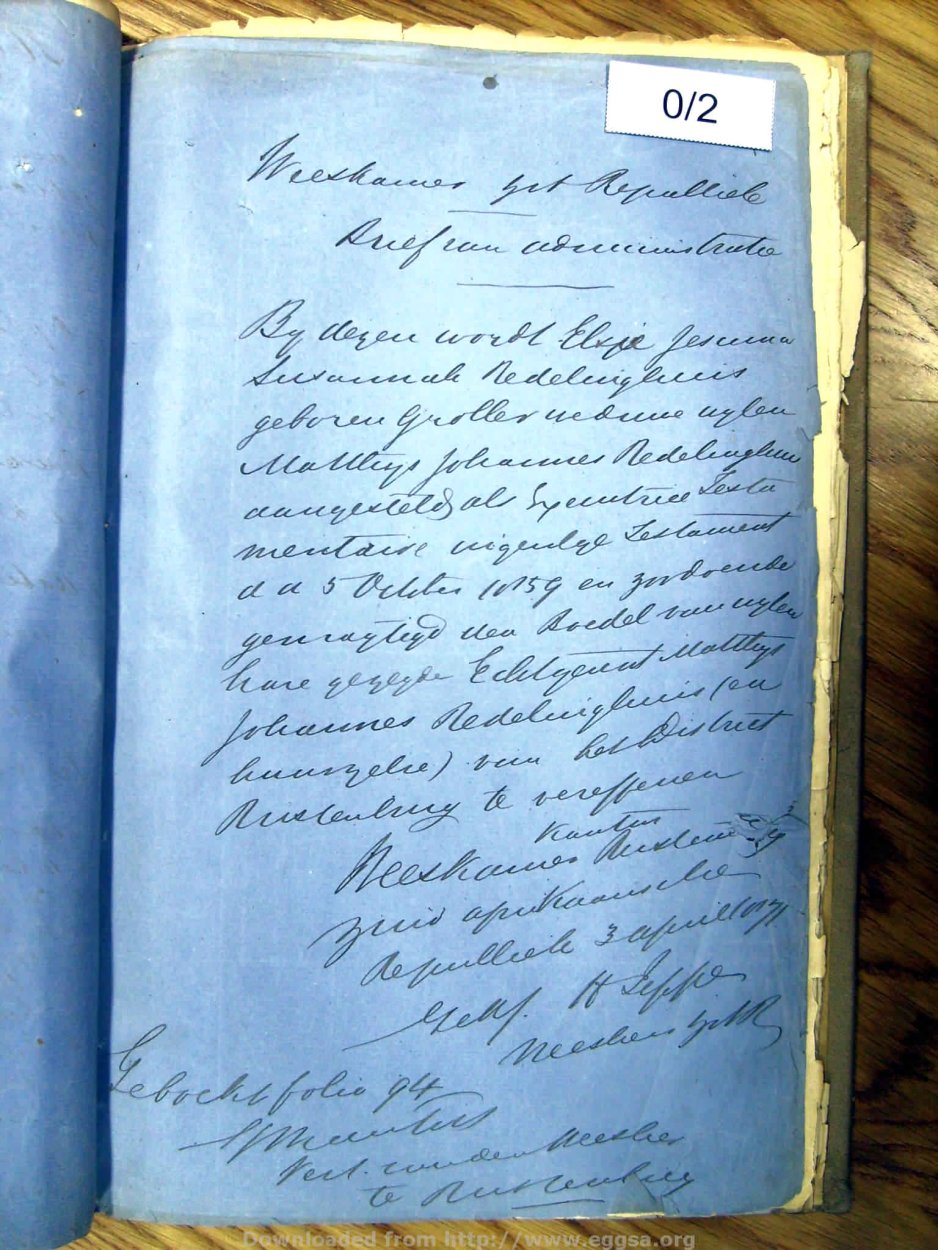 0/2
Weeskamer ZA Republiek
Brief van administratie
By dezen wordt Elsje Jesuina
Susannah Redelinghuis
geboren Grobler weduwe wylen
Matthys Johannes Redelinghuis
aangesteld als Executrice Testa
mentaire ingevolge Testament
d d 5 October 1859 en zoodoende
gemagtigd den Boedel van wylen
hare gezegde Echtgenoot Matthys
Johannes Redelinghuis (en
haarzelve) van het District
Rustenburg te vereffenen
Kantoor
Weeskamer Rustenburg
Zuid Afrikaansche
Republiek 3 April 1871
Getk. H Jeppe
Weeshr
Geboekt folio 94
Vert. van den Weeshr
te Rustenburg
Downloaded from http://www.eggsa.org